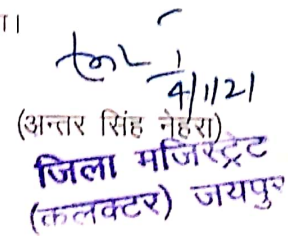 ।
4/1/21
(अन्तर सिंह नेहरा)
जिला मजिस्ट्रेट
(कलक्टर) जयपुर